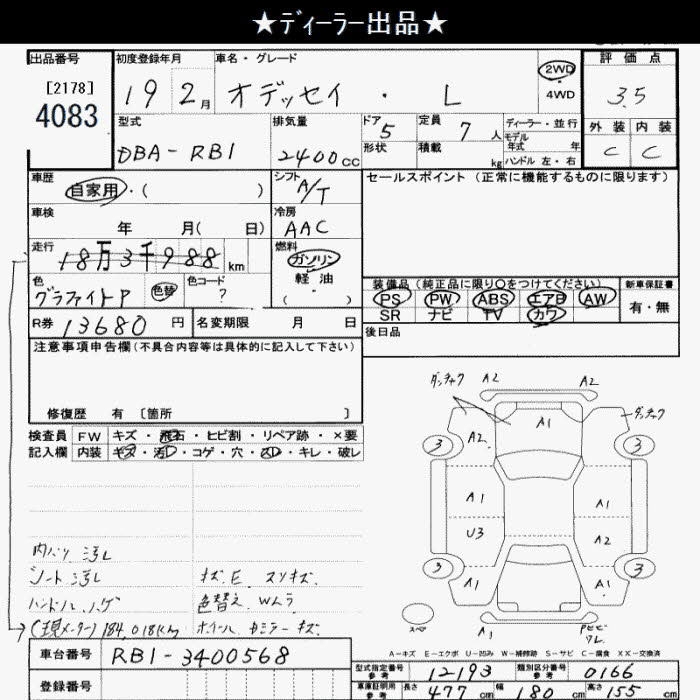 ★ディーラー出品★
出品番号
[2178]
4083
初度登録年月
19 2月
車名・グレード
オデッセイ ・ L
2WD
・
4WD
評価点
3.5
外装 内装
C C
型式
DBA-RB1
排気量
2400cc
ドア 5
形状
定員 7人
積載 kg
ディーラー・並行
モデル年式 年
ハンドル 左・右
車歴
自家用・( )
シフト
A/T
セールスポイント (正常に機能するものに限ります)
車検
年 月( 日)
冷房
AAC
走行
18万3千988km
燃料
ガソリン
・
軽油
( )
色
グラファイトP 色替
色コード
?
装備品 (純正品に限り○をつけてください)
PS PW ABS エアB AW
SR ナビ TV カワ
新車保証書
有・無
R券 13680円
名変期限 月 日
後日品
注意事項申告欄(不具合内容等は具体的に記入して下さい)
修復歴 有 [箇所 ]
検査員記入欄
FW キズ・飛石・ヒビ割・リペア跡・×要
内装 キズ・汚れ・コゲ・穴・スレ・キレ・破レ
内バリ 汚レ
シート 汚レ キズ、E、スリキズ、
ハンドル ハゲ 色替え、Wムラ
(現メーター) 184,018km ホイール、ドアミラー キズ
ガンチャク A2 A2
A1 ガンチャク
3 A2 3
A1 A1
U3 A2
3 3
A1 A1
スペア
A1
A=キズ E=エクボ U=凹み W=補修跡 S=サビ C=腐食 XX=交換済
車台番号 RB1-3400568
登録番号
型式指定番号参考 12193 類別区分番号参考 0166
車庫証明用参考 長さ 477cm 幅 180cm 高さ 155cm